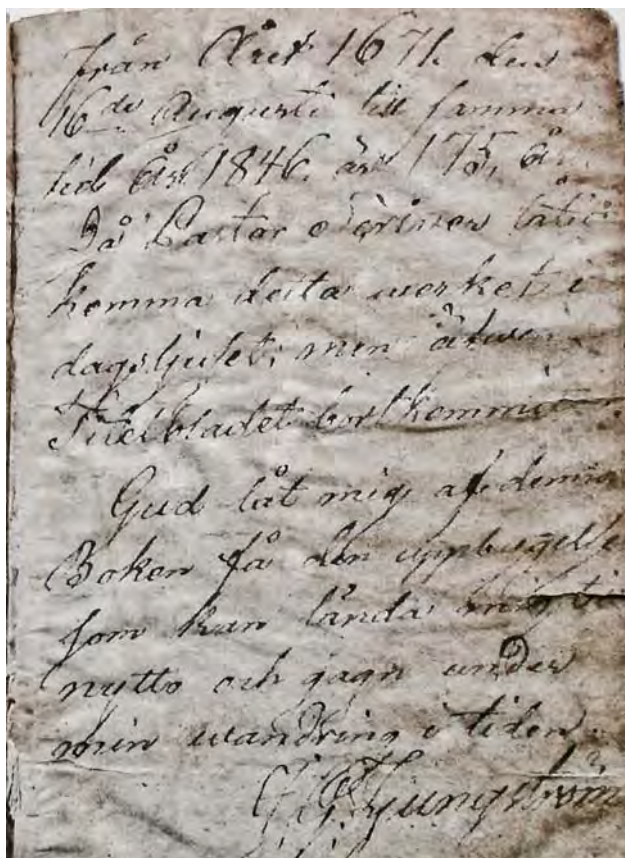 från Året 1671. den
16de Augusti till samma
tid År 1846. är 175, År.
Då Pastor låtit
komma detta werket i
dagsljuset, men
Titelbladet bortkommit
Gud låt mig af denna
Boken få den uppbyggelse
som kan lända mig til
nytto och gagn under
min wandring i tiden.
Ljungström